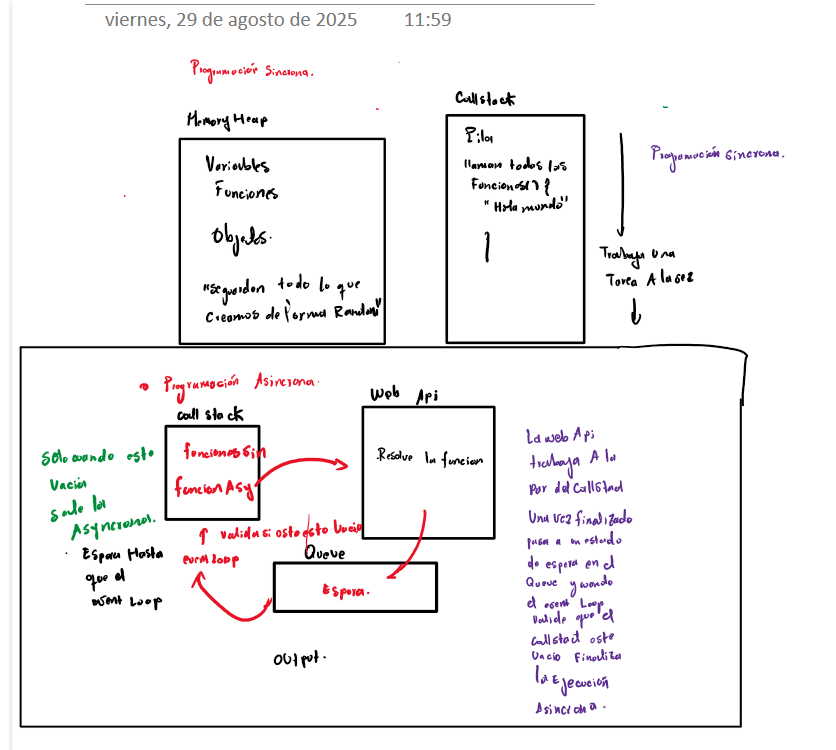 viernes, 29 de agosto de 2025 11:59
Programación Sincrona.
Memory Heap
Variables
Funciones
Objetos.
"Se guardan todo lo que
Creamos de Forma Random"
Callstack
Pila
llaman todas las
Funciones() {
"Hola mundo"
}
Programación Sincrona.
Trabaja una
Tarea A la vez
Programación Asincrona.
Call stack
funciones Sin
funcion Asy
Web Api
Resolve la funcion
Solo cuando este
Vacia
sale la
Asyncrona.
Espera Hasta
que el
event Loop
valida si esta esto Vacio
event loop
Queue
Espera.
Output.
La web Api
trabaja A la
Par del Callstad
Una vez finalizado
pasa a un estado
de espera en el
Queue y cuando
el event Loop
Valide que el
callstad este
Vacio Finaliza
la Ejecución
Asincrona.